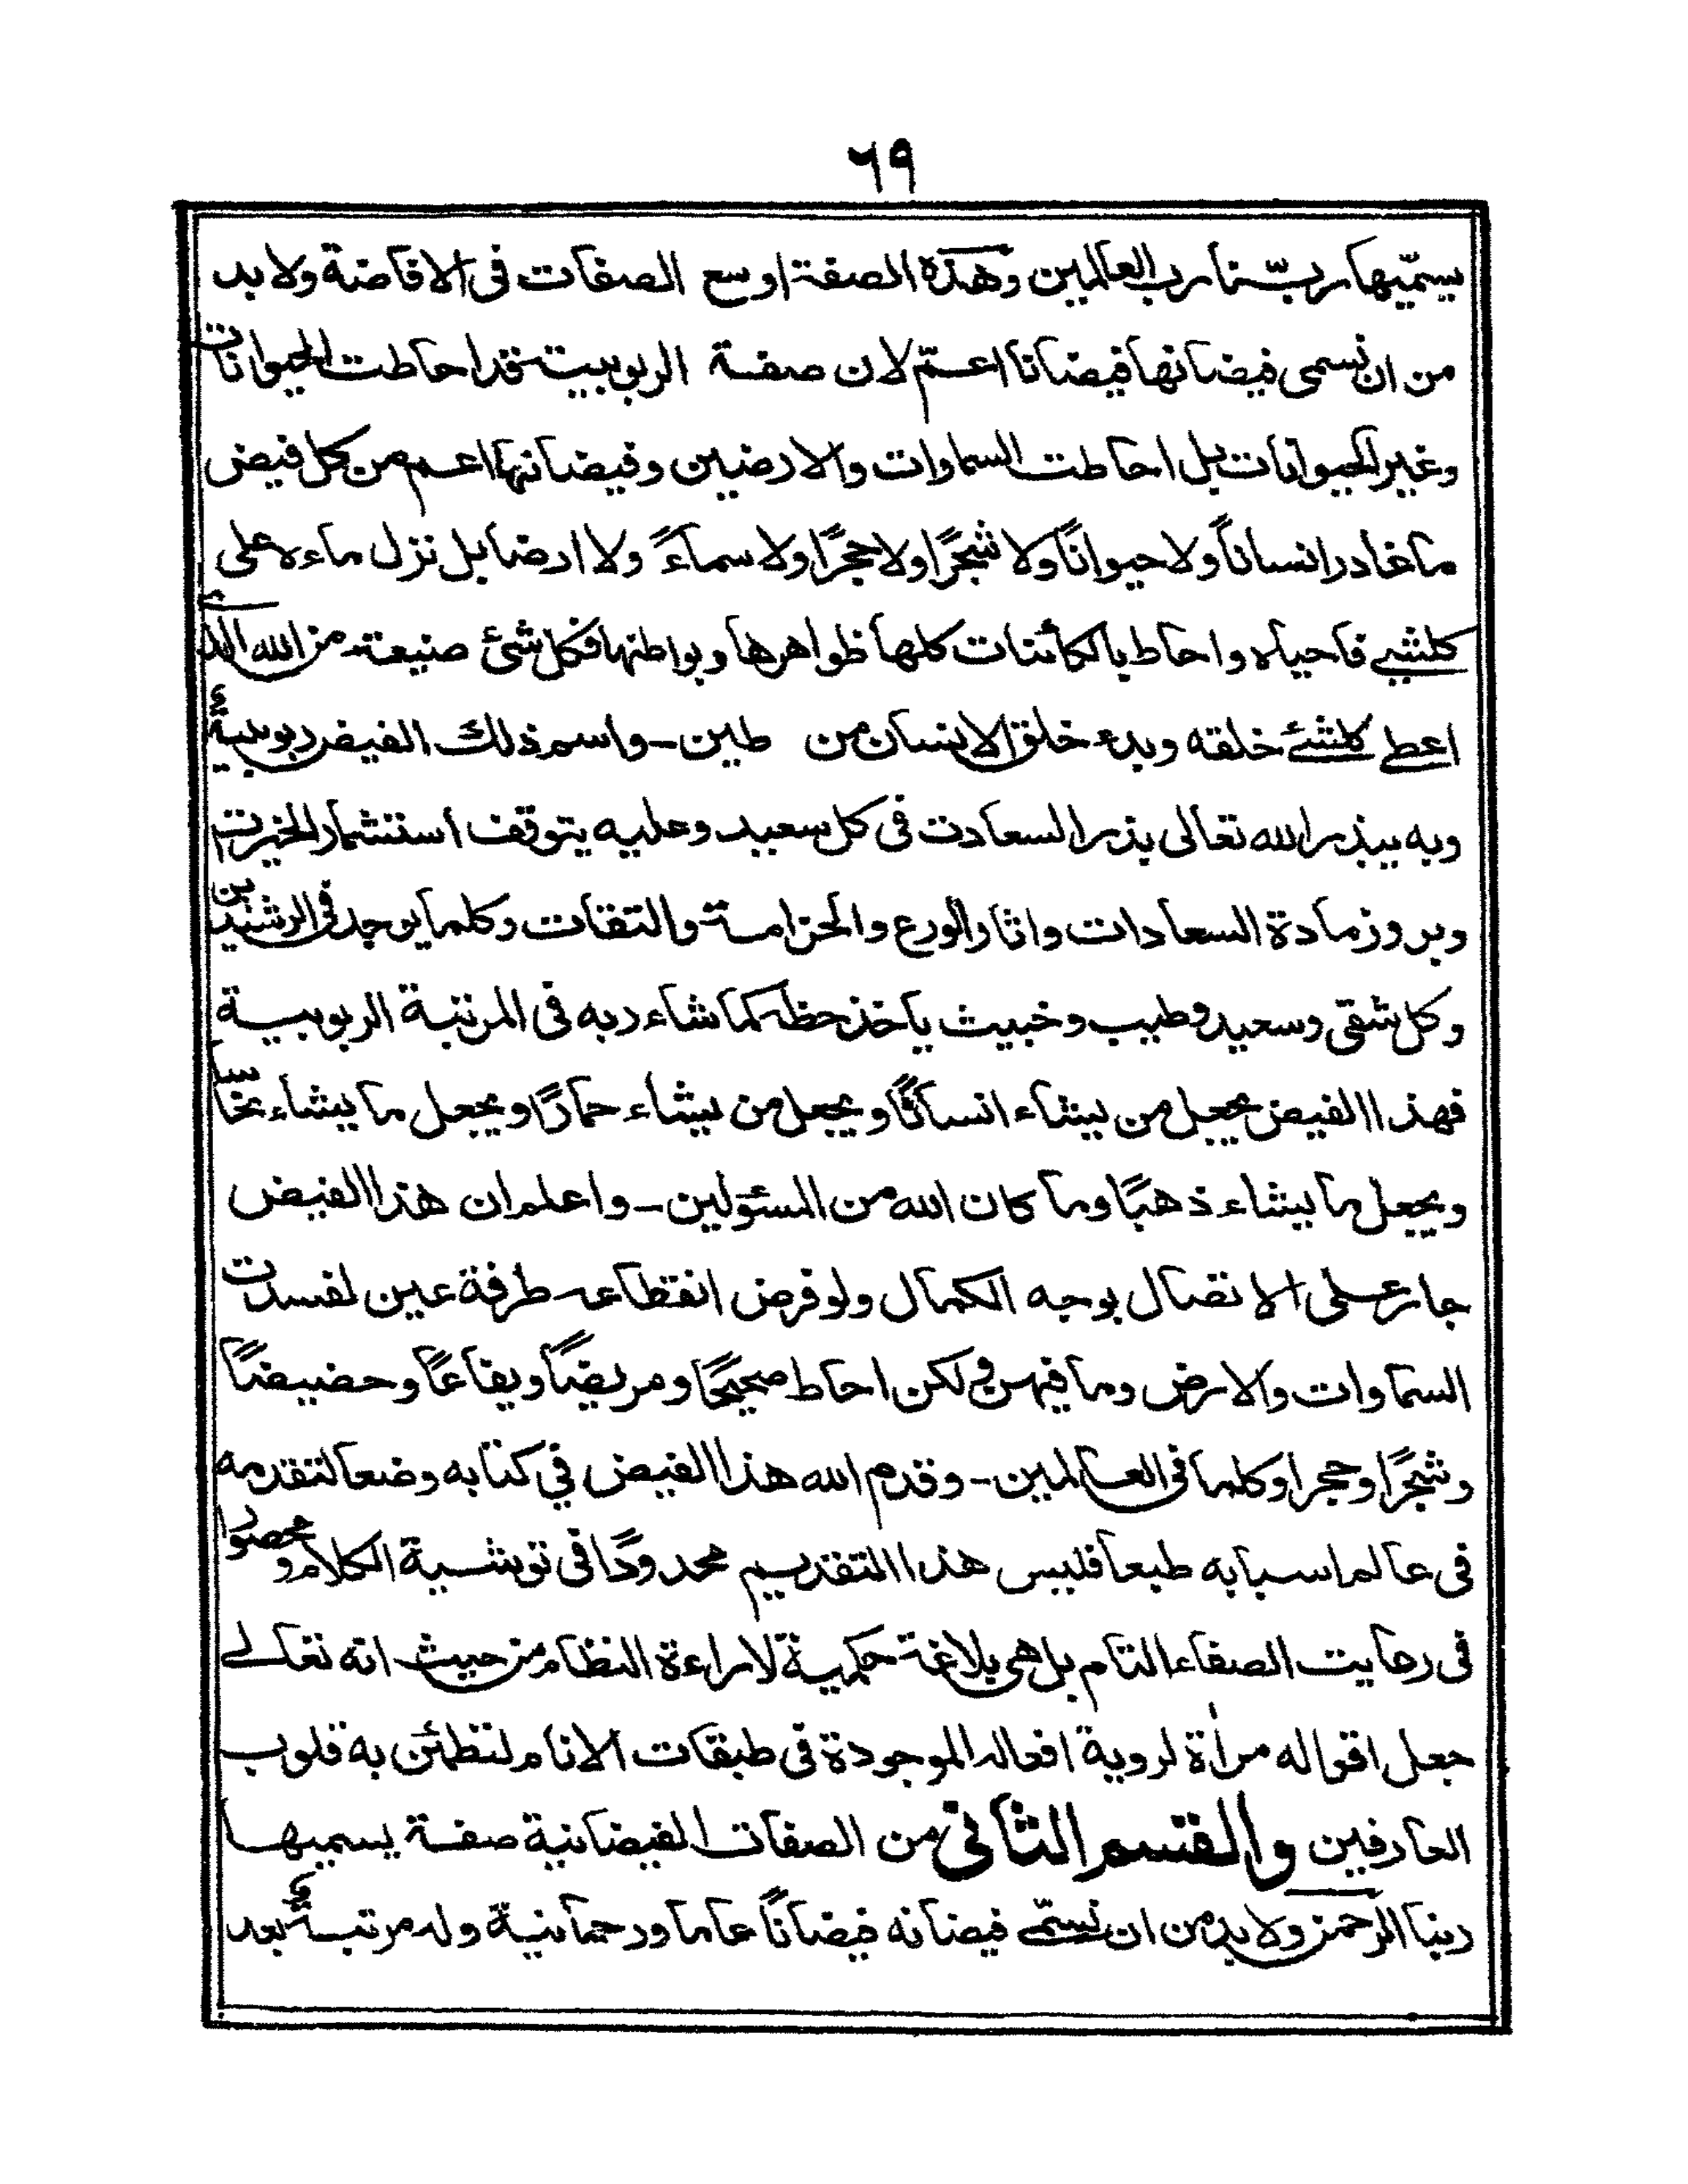 ٦٩
يسمّيها ربّنا رب العالمين وهذه الصفة اوسع الصفات فى الافاضة ولا بد
من ان نسمى فيضانها فيضانا اعمّ لان صفة الربوبيت قد احاطت الحيوانات
وغير الحيوانات بل احاطت السماوات والارضين وفيضانها اعم من كل فيض
ما غادر انساناً ولا حيواناً ولا شجرًا ولا حجرًا ولا سماءً ولا ارضا بل نزل ماءه على
كلشيے فاحياه واحاط بالكائنات كلها ظواهرها وبواطنها فكل شئ صنيعة من الله الذے
اعطے كلشئے خلقه وبدء خلق الانسان من طين ــ واسم ذلك الفيض ربوبيةٌ
وبه يبذر الله تعالى بذر السعادت فى كل سعيد وعليه يتوقف استثمار الخيرات
وبروز مادة السعادات واثار الورع والحزامة والتقات وكلما يوجد فى الرشيدين
وكل شقى وسعيد وطيب وخبيث ياخذ حظه كما شاء ربه فى المرتبة الربوبية
فهذا الفيض يجعل من يشاء انسانًا ويجعل من يشاء حمارًا ويجعل ما يشاء نحاسا
ويجعل ما يشاء ذهبًا وما كان الله من المسئولين ــ واعلم ان هذا الفيض
جار على الاتصال بوجه الكمال ولو فرض انقطاعه طرفة عين لفسدت
السماوات والارض وما فيهن ولكن احاط صحيحًا ومريضًا ويفاعًا وحضيضًا
وشجرًا وحجرا وكلما فى العالمين ــ وقدم الله هذا الفيض في كتابه وضعا لتقدمه
فى عالم اسبابه طبعا فليس هذا التقديم محدودًا فى توشية الكلام ومحصورا
فى رعايت الصفاء التام بل هى بلاغة حكمية لاراءة النظام من حيث انه تعالے
جعل اقواله مرأة لروية افعاله الموجودة فى طبقات الانام لتطمئن به قلوب
العارفين والقسم الثانى من الصفات الفيضانية صفة يسميها
ربنا الرحمن ولا بد من ان نسمّے فيضانه فيضانًا عاما ورحمانية وله مرتبةٌ بعد